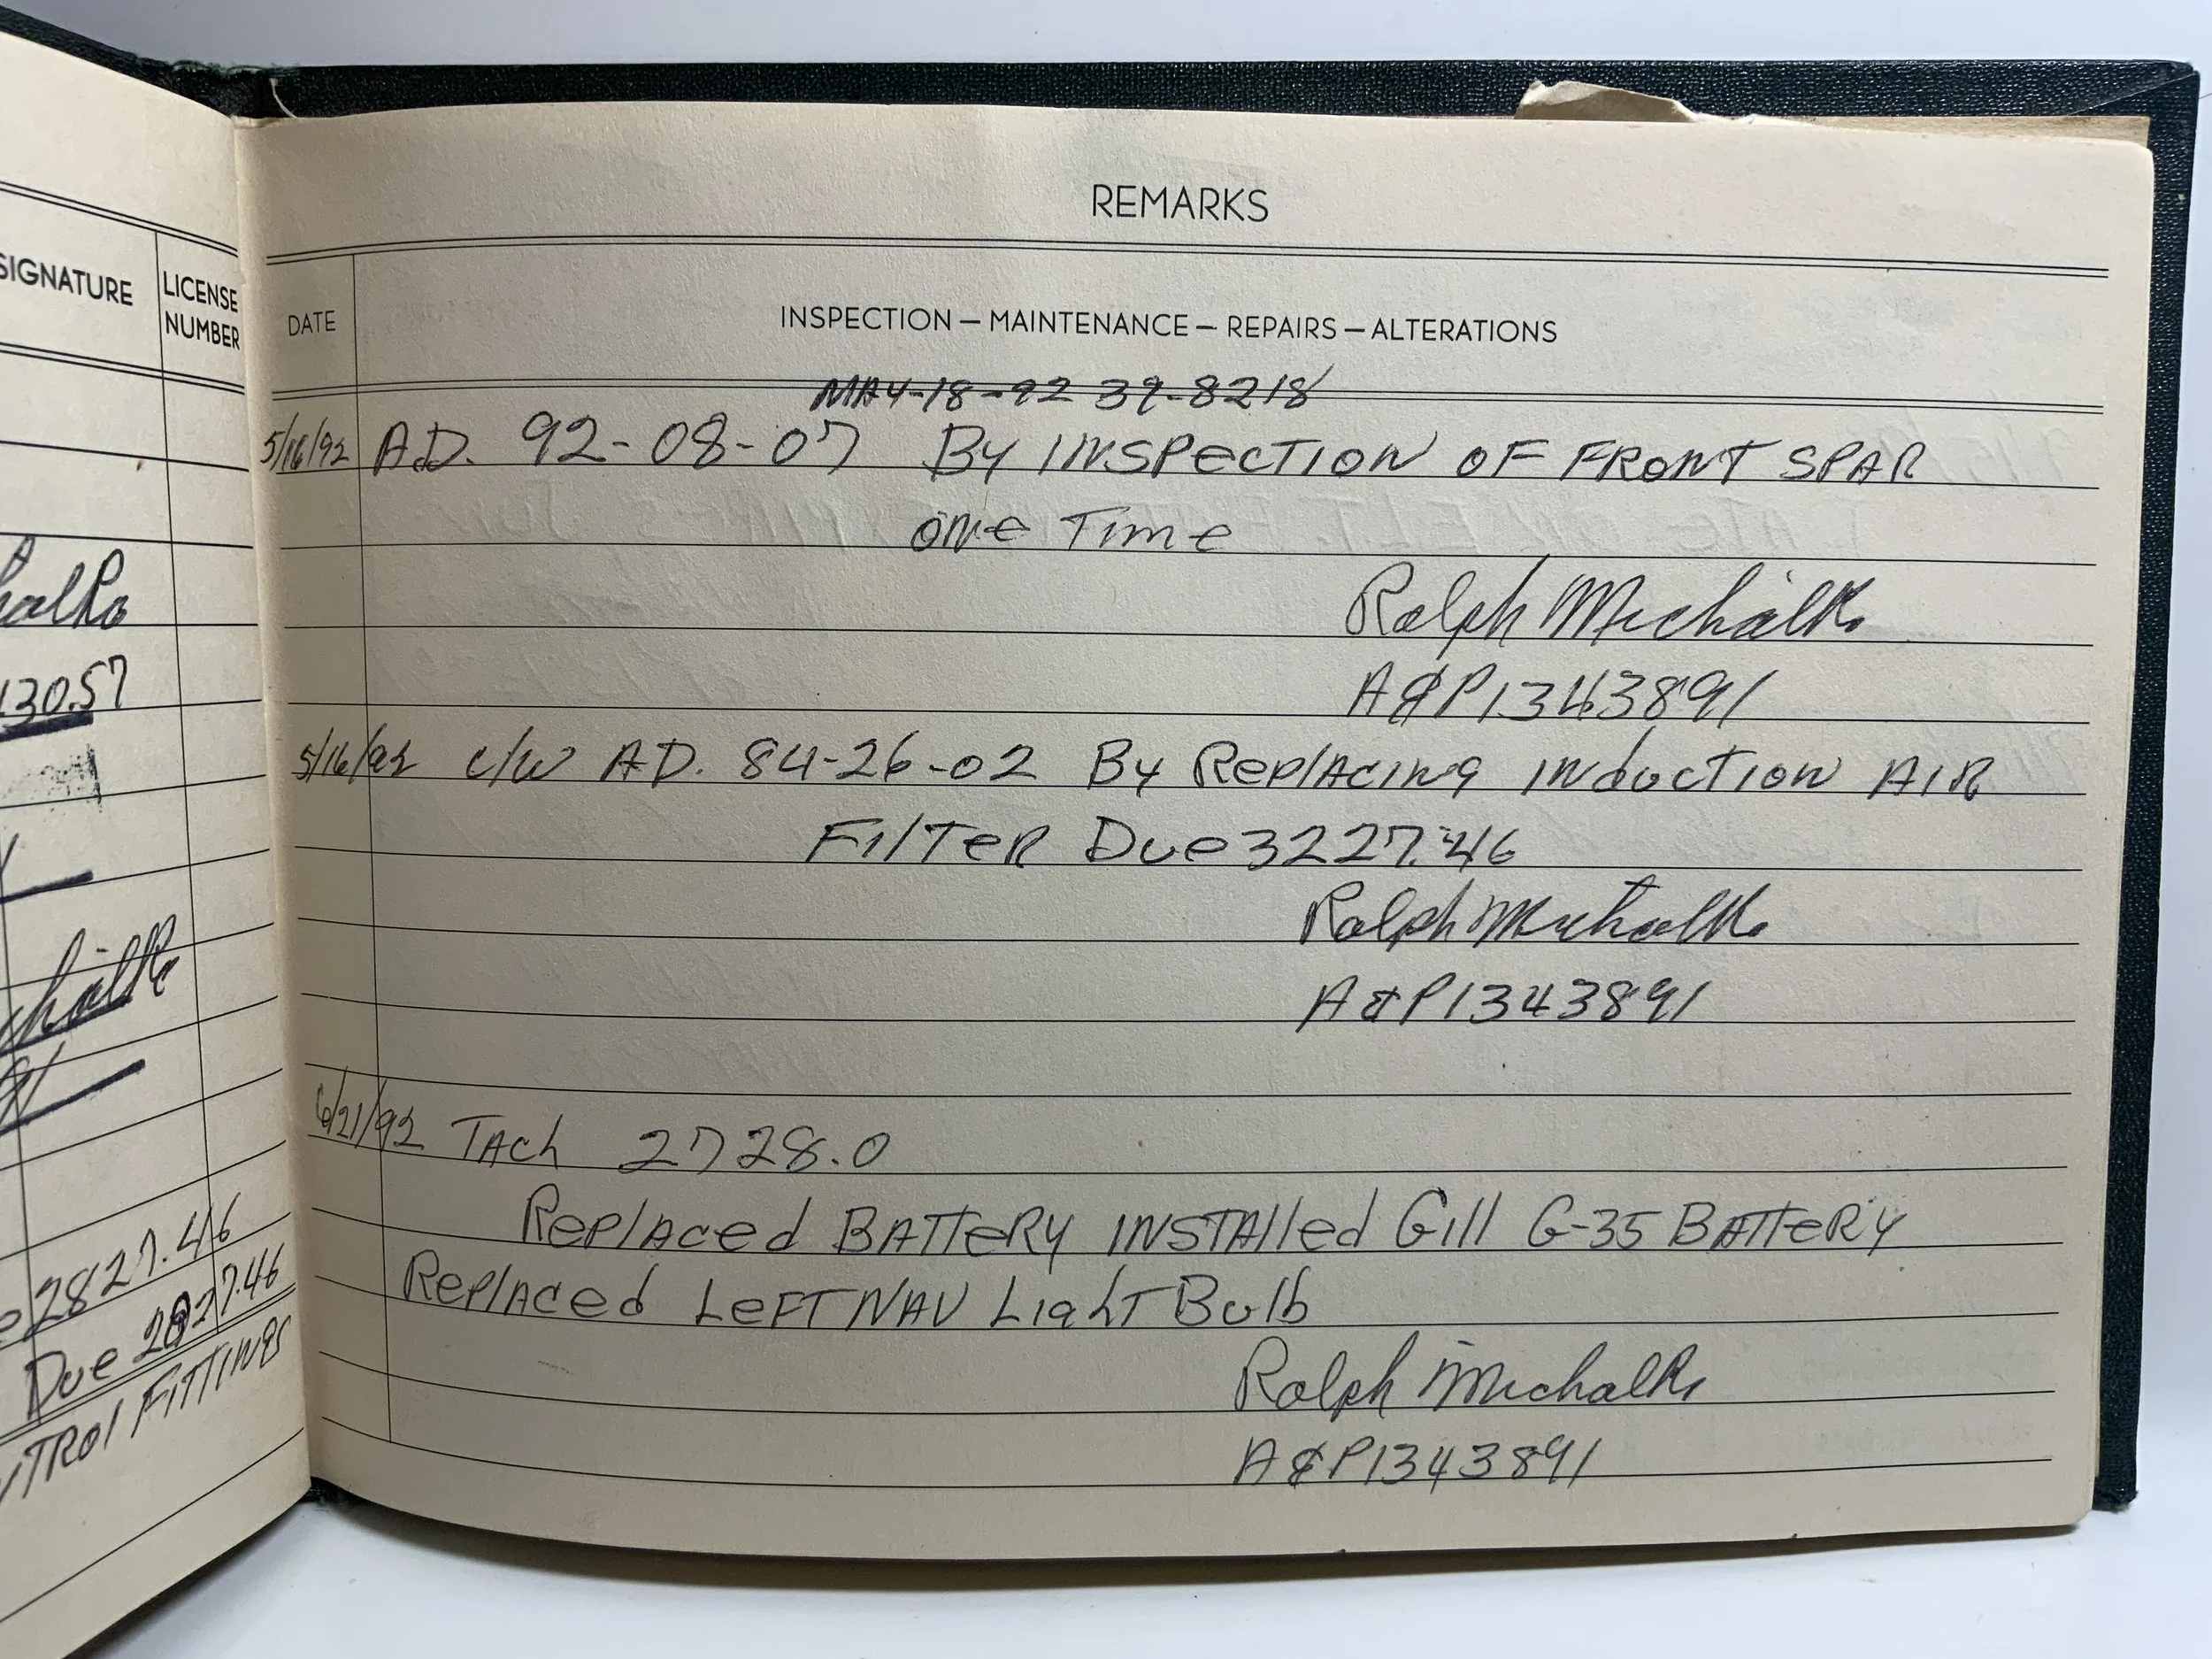 SIGNATURE
LICENSE
NUMBER
130.57
2827.46
Due 2827.46
TROL FITTINGS
REMARKS
DATE
INSPECTION — MAINTENANCE — REPAIRS — ALTERATIONS
MAY-18-92 39-8218
5/16/92 A.D. 92-08-07 By INSPECTION OF FRONT SPAR
ONE Time
Ralph Michalk
A&P1343891
5/16/92 c/w AD. 84-26-02 By RePlAcINg INductION AIR
FilTeR Due 3227.46
Ralph Michalk
A&P1343891
6/21/92 TAch 2728.0
RePlAced BATTeRY INSTAlled Gill G-35 BATTeRY
RePlAced LeFT NAV LighT Bulb
Ralph Michalk
A&P1343891